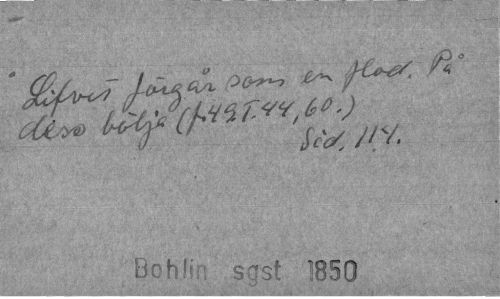 Lifvet förgår som en flod. På
dess bölja (f. 49 T. 44, 60.)
Sid. 114.
Bohlin sgst 1850